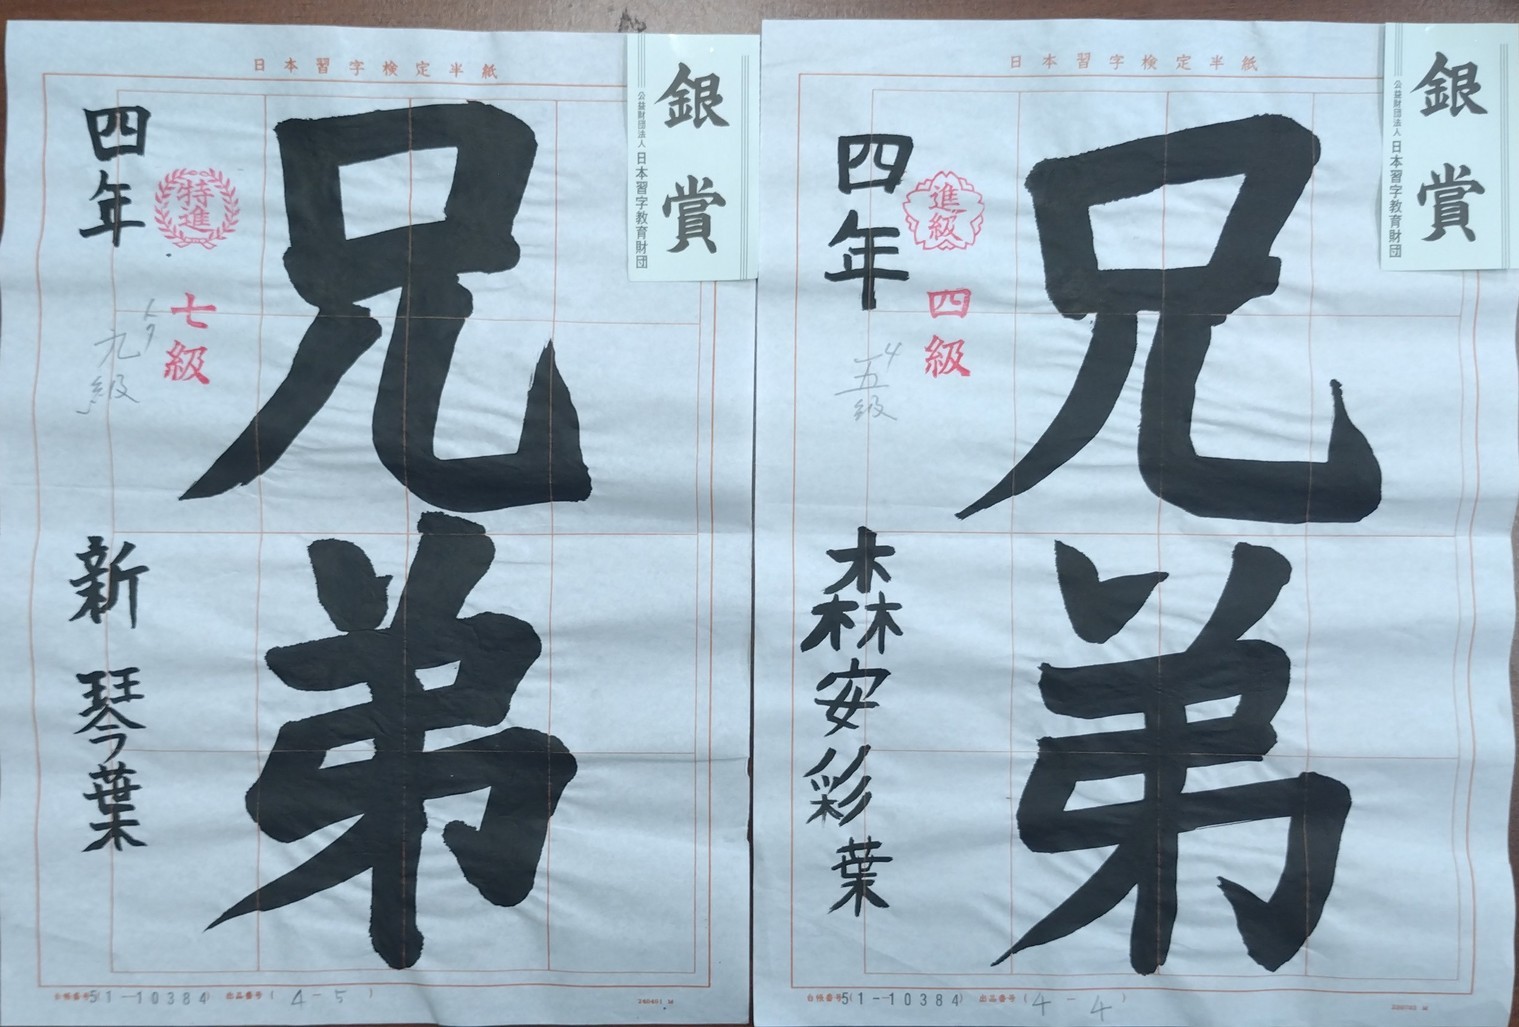 日本習字検定半紙
銀賞
公益財団法人 日本習字教育財団
兄弟
四年
特進
七級
九級
新 琴葉
台帳番号5(1-10384) 出品番号(4-5)
日本習字検定半紙
銀賞
公益財団法人 日本習字教育財団
兄弟
四年
進級
四級
4
五級
森安彩葉
台帳番号5(1-10384) 出品番号(4-4)